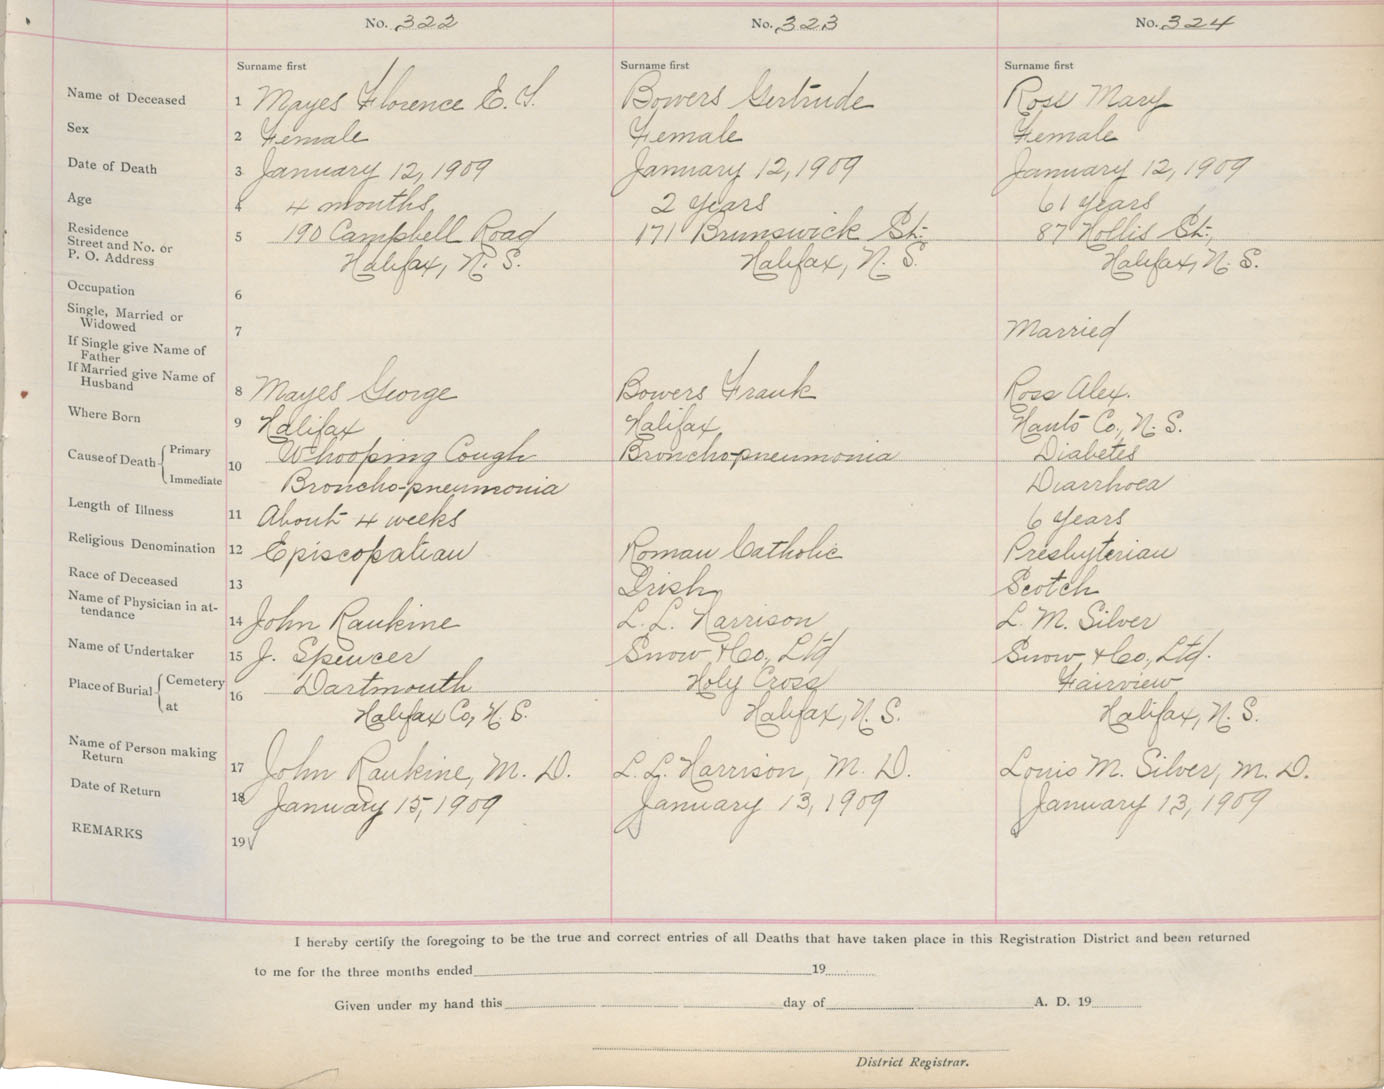 No. 322 No. 323 No. 324
Surname first Surname first Surname first
Name of Deceased 1 Mayes Florence E. Y. Bowers Gertrude Ross Mary
Sex 2 Female Female Female
Date of Death 3 January 12, 1909 January 12, 1909 January 12, 1909
Age 4 4 months. 2 years 61 years
Residence
Street and No. or 5 190 Campbell Road 171 Brunswick St. 87 Hollis St.,
P. O. Address Halifax, N. S. Halifax, N. S. Halifax, N. S.
Occupation 6
Single, Married or
Widowed 7 Married
If Single give Name of
Father
If Married give Name of
Husband 8 Mayes George Bowers Frank Ross Alex.
Where Born 9 Halifax Halifax Hants Co., N. S.
Cause of Death { Primary 10 Whooping Cough Broncho-pneumonia Diabetes
Immediate Broncho-pneumonia Diarrhoea
Length of Illness 11 About 4 weeks 6 years
Religious Denomination 12 Episcopalian Roman Catholic Presbyterian
Race of Deceased 13 Irish Scotch
Name of Physician in at-
tendance 14 John Rankine L. L. Harrison L. M. Silver
Name of Undertaker 15 J. Spencer Snow & Co., Ltd Snow & Co., Ltd.
Place of Burial { Cemetery 16 Dartmouth Holy Cross Fairview
at Halifax Co, N. S. Halifax, N. S. Halifax, N. S.
Name of Person making
Return 17 John Rankine, M. D. L. L. Harrison, M. D. Louis M. Silver, M. D.
Date of Return 18 January 15, 1909 January 13, 1909 January 13, 1909
REMARKS 19
I hereby certify the foregoing to be the true and correct entries of all Deaths that have taken place in this Registration District and been returned
to me for the three months ended 19
Given under my hand this day of A. D. 19
District Registrar.